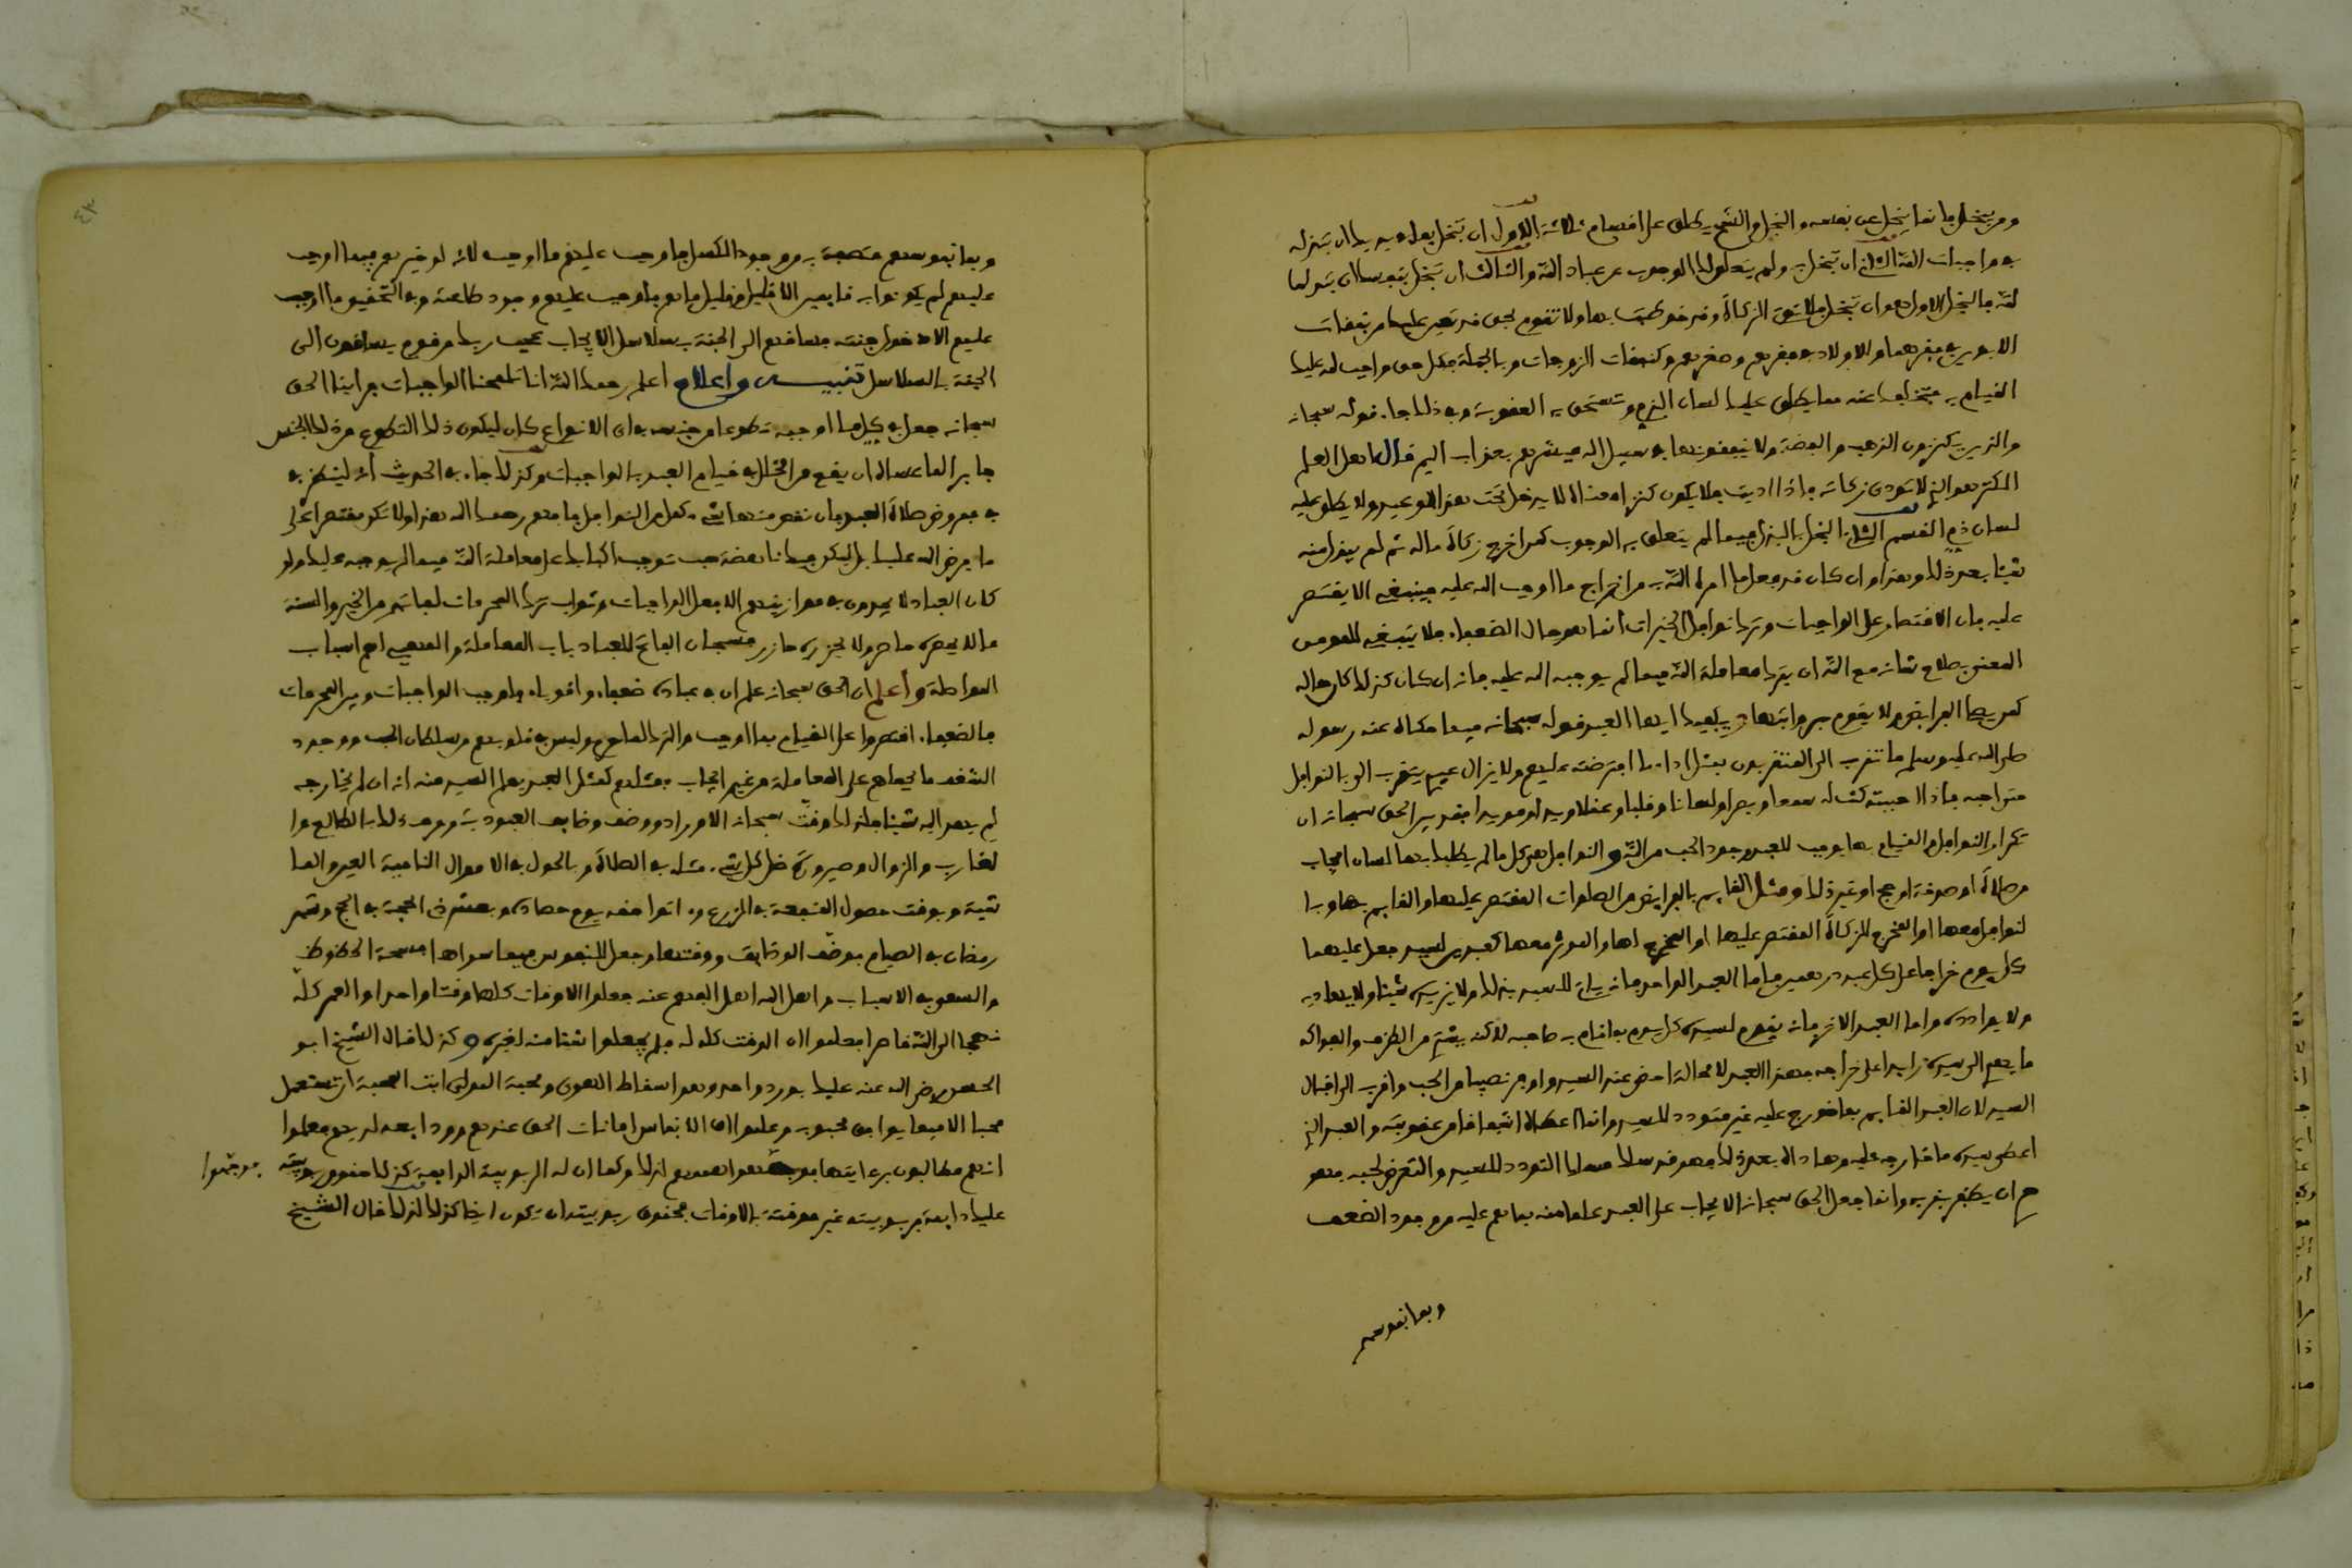 ومن يبخل فإنما يبخل عن نفسه والبخل والشح يطلق على اقسام ثلاثة الاول ان تبخل بما في يديك ان تبذله
في واجبات الله الثاني ان تبخل به ولم يتعلق لك الوجوب من عباد الله والثالث ان تبخل بنفسك ان تبذلها
لله فالبخل الاول هو ان تبخل فلا تؤتي الزكاة وقد خوطبت بها ولا تقوم بحق قد تعين عليك من نفقات
الابوين في فقرهما والاولاد في فقرهم وصغرهم وكنفقات الزوجات وبالجملة فكل حق واجب لله عليك
القيام به فتخلفك عنه مما يطلق عليك لسان الذم وتستحق به العقوبة وفي ذلك جاء قوله سبحانه
والذين يكنزون الذهب والفضة ولا ينفقونها في سبيل الله فبشرهم بعذاب اليم قال اهل العلم
الكنز هو الذي لا تؤدى زكاته فاذا اديت فلا يكون كنزا معناه لا يدخل تحت هذا الوعيد ولا يطلق عليه
لسان ذم القسم الثاني البخل بالبذل فيما لم يتعلق به الوجوب كمن اخرج زكاة ماله ثم لم يبذل منه
شيئا بعد ذلك وهذا وان كان قد فعل ما امره الله به من اخراج ما اوجب الله عليه فينبغي الا يقتصر
عليه فان الاقتصار على الواجبات وترك نوافل الخيرات انما هو حال الضعفاء فلا ينبغي للمومن
المعني بصلاح شانه مع الله ان يترك معاملة الله فيما لم يوجبه الله عليه فانه ان كان كذلك كان حاله
كمن يصلي الفرايض ولا يقوم برواتبها ويكفيك ايها العبد قوله سبحانه فيما حكاه عنه رسوله
صلى الله عليه وسلم ما تقرب الى المتقربون بمثل اداء ما افترضته عليهم ولا يزال عبدي يتقرب الي بالنوافل
حتى احبه فاذا احببته كنت له سمعا وبصرا ولسانا وقلبا وعقلا ويدا ومويدا فقد بين الحق سبحانه ان
تكرار النوافل والقيام بها يوجب للعبد وجود الحب من الله والنوافل هي كل ما لم يطلبك بها لسان ايجاب
من صلاة او صدقة او حج او غير ذلك ومثل القايم بالفرايض من الصلوات المقتصر عليها والقايم بها وبا
لنوافل معها او المخرج للزكاة المقتصر عليها او المخرج لها والموثر معها كعبدين لسيد جعل عليهما
كل يوم خراجا على كل عبد درهمين فاما العبد الواحد فانه ياتي للسيد بذلك ولا يزيده شيئا ولا يهاديه
ولا يوادده واما العبد الاخر فانه يقوم لسيده كل يوم بما قام به صاحبه لاكنه يشتري من الطرف والفواكه
ما يهدي الى سيده زايدا على خراجه فهذا العبد لا محالة احظى عند السيد واوفر نصيبا من الحب واقرب الى اقبال
السيد لان العبد القايم بما خورج عليه غير متودد للسيد وانما اعطاه اشفاقا من عقوبته والعبد الذي
اعطى سيده ما خارجه عليه وهاداه بعد ذلك فهو قد سلك مسلك التودد للسيد والتعرض لحبه فهو
حري ان يظفر بقربه وانما جعل الحق سبحانه الايجاب على العبد علما منه بما هم عليه من وجود الضعف
وبما نفوسهم
٤٣
وبما نفوسهم متصفة به من وجود الكسل فاوجب عليهم ما اوجب لانه لو خيرهم فيما اوجب
عليهم لم يكونوا به قايمين الا قليل وقليل ما هم فاوجب عليهم وجود طاعته وفي التحقيق ما اوجب
عليهم الا دخول جنته فساقهم الى الجنة بسلاسل الايجاب عجب ربك من قوم يساقون الى
الجنة بالسلاسل تنبيه واعلام اعلم رحمك الله انا تلمحنا الواجبات فراينا الحق
سبحانه جعل في كل ما اوجبه تطوعا من جنسه في اي الانواع كان ليكون ذلك التطوع من ذلك الجنس
جابرا لما عساه ان يقع من الخلل في قيام العبد بالواجبات وكذلك جاء في الحديث انه ينظر في
في مفروض صلاة العبد فان نقص منها شيء كمل من النوافل فافهم رحمك الله هذا ولا تكن مقتصرا على
ما فرض الله عليك بل لتكن فيك ناهضة حب توجب اكبابك على معاملة الله فيما لم يوجبه عليك ولو
كان العباد لا يجدون في موازينهم الا فعل الواجبات وثواب ترك المحرمات لفاتهم من الخير والمنة
ما لا يحصره حاصر ولا يحزره حازر فسبحان الفاتح للعباد باب المعاملة والمهيئ لهم اسباب
المواصلة واعلم ان الحق سبحانه علم ان في عباده ضعفاء واقوياء فاوجب الواجبات وبين المحرمات
فالضعفاء اقتصروا على القيام بما اوجب والترك لما حرم وليس في قلوبهم من سلطان الحب ووجود
الشغف ما يحملهم على المعاملة من غير ايجاب فمثلهم كمثل العبد يعلم السيد منه انه ان لم يخارجه
لم يهد اليه شيئا فلذلك وقت سبحانه الاوراد ووظف وظايف العبودية وربط ذلك بالطالع وا
لغارب والزوال وصيرورة ظل كل شيء مثله في الصلاة وبالحول في الاموال النامية العين والما
شية وبوقت حصول المنفعة في الزرع واتوا حقه يوم حصاده وبعشر ذي الحجة في الحج وشهر
رمضان في الصيام فوظف الوظايف ووقتها وجعل للنفوس فيما سواها فسحة الحظوظ
والسعي في الاسباب واهل الله اهل الفهم عنه جعلوا الاوقات كلها وقتا واحدا والعمر كله
نهجا الى الله قاصدا فعلموا ان الوقت كله له فلم يجعلوا شيئا منه لغيره وكذلك قال الشيخ ابو
الحسن رضي الله عنه عليك بورد واحد وهو اسقاط الهوى ومحبة المولى ابت المحبة ان تستعمل
محبا الا فيما يوافق محبوبه وعلموا ان الانفاس امانات الحق عندهم وودايعه لديهم فعلموا
انهم مطالبون برعايتها فوجهوا هممهم لذلك وكما ان له الربوبية الدايمة كذلك حقوق ربوبيته
فوجهوا
عليك دايمة فربوبيته غير موقتة بالاوقات فحقوق ربوبيته ان تكون ايضا كذلك لذلك قال الشيخ